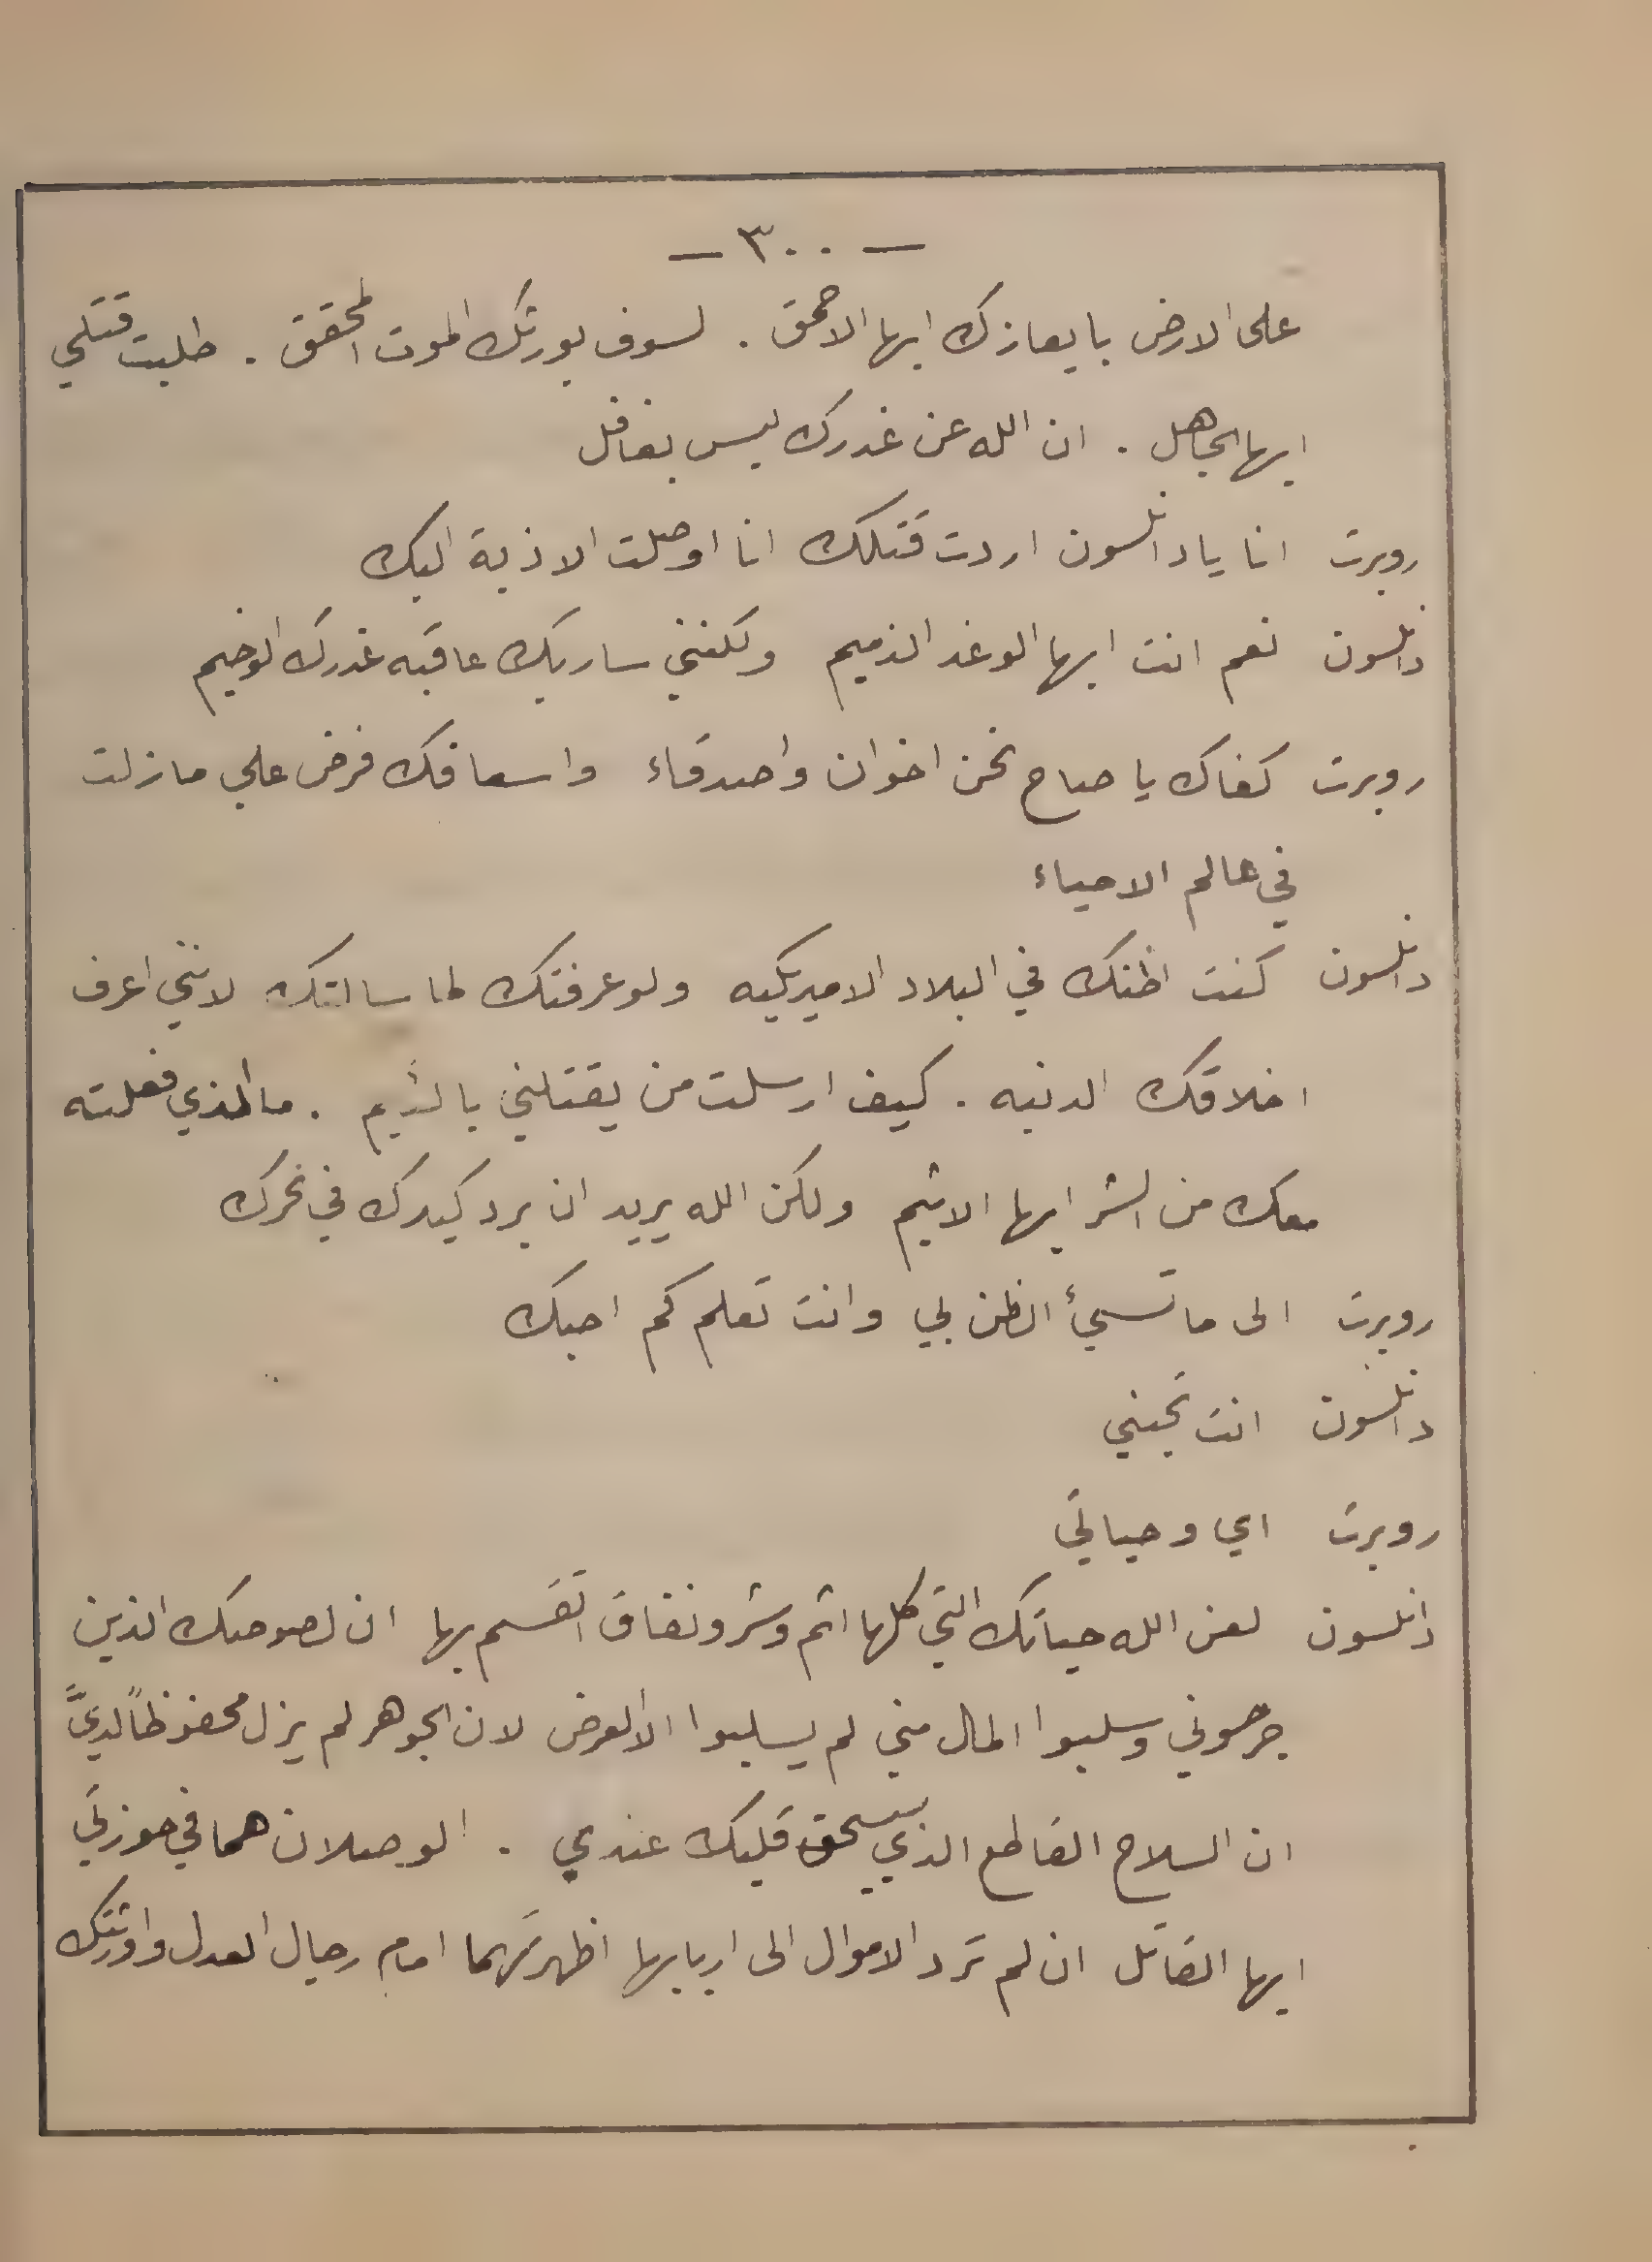 — ٣٠٠ —
على الارض بايعازك ايها الاحمق . لسوف يورثك الموت المحقق . طلبت قتلي
ايها الجاهل . ان الله عن غدرك ليس بغافل
روبرت انا يا دانلسون اردت قتلك انا اوصلت الاذية اليك
دانلسون نعم انت ايها الوغد الذميم ولكنني ساريك عاقبه غدرك الوخيم
روبرت كفاك يا صاح نحن اخوان واصدقاء واسعافك فرض علي ما زلت
في عالم الاحياء
دانلسون كنت اظنك في البلاد الاميريكيه ولو عرفتك لما سالتك لانني اعرف
اخلاقك الدنيه . كيف ارسلت من يقتلني يا لئيم . ما الذي فعلته
معك من الشر ايها الاثيم ولكن الله يريد ان يرد كيدك في نحرك
روبرت الى ما تسيئ الظن بي وانت تعلم كم احبك
دانلسون انت تحبني
روبرت اي وحياتي
دانلسون لعن الله حياتك التي كلها اثم وشر ونفاق اتقسم بها ان لصوصك الذين
جرحوني وسلبوا المال مني لم يسلبوا الا العرض لان الجوهر لم يزل محفوظاً لديَّ
ان السلاح القاطع الذي سيسحق قلبك عندي . الوصلان هما في حوزتي
ايها القاتل ان لم ترد الاموال الى اربابها اظهرتهما امام رجال العدل واورثتك